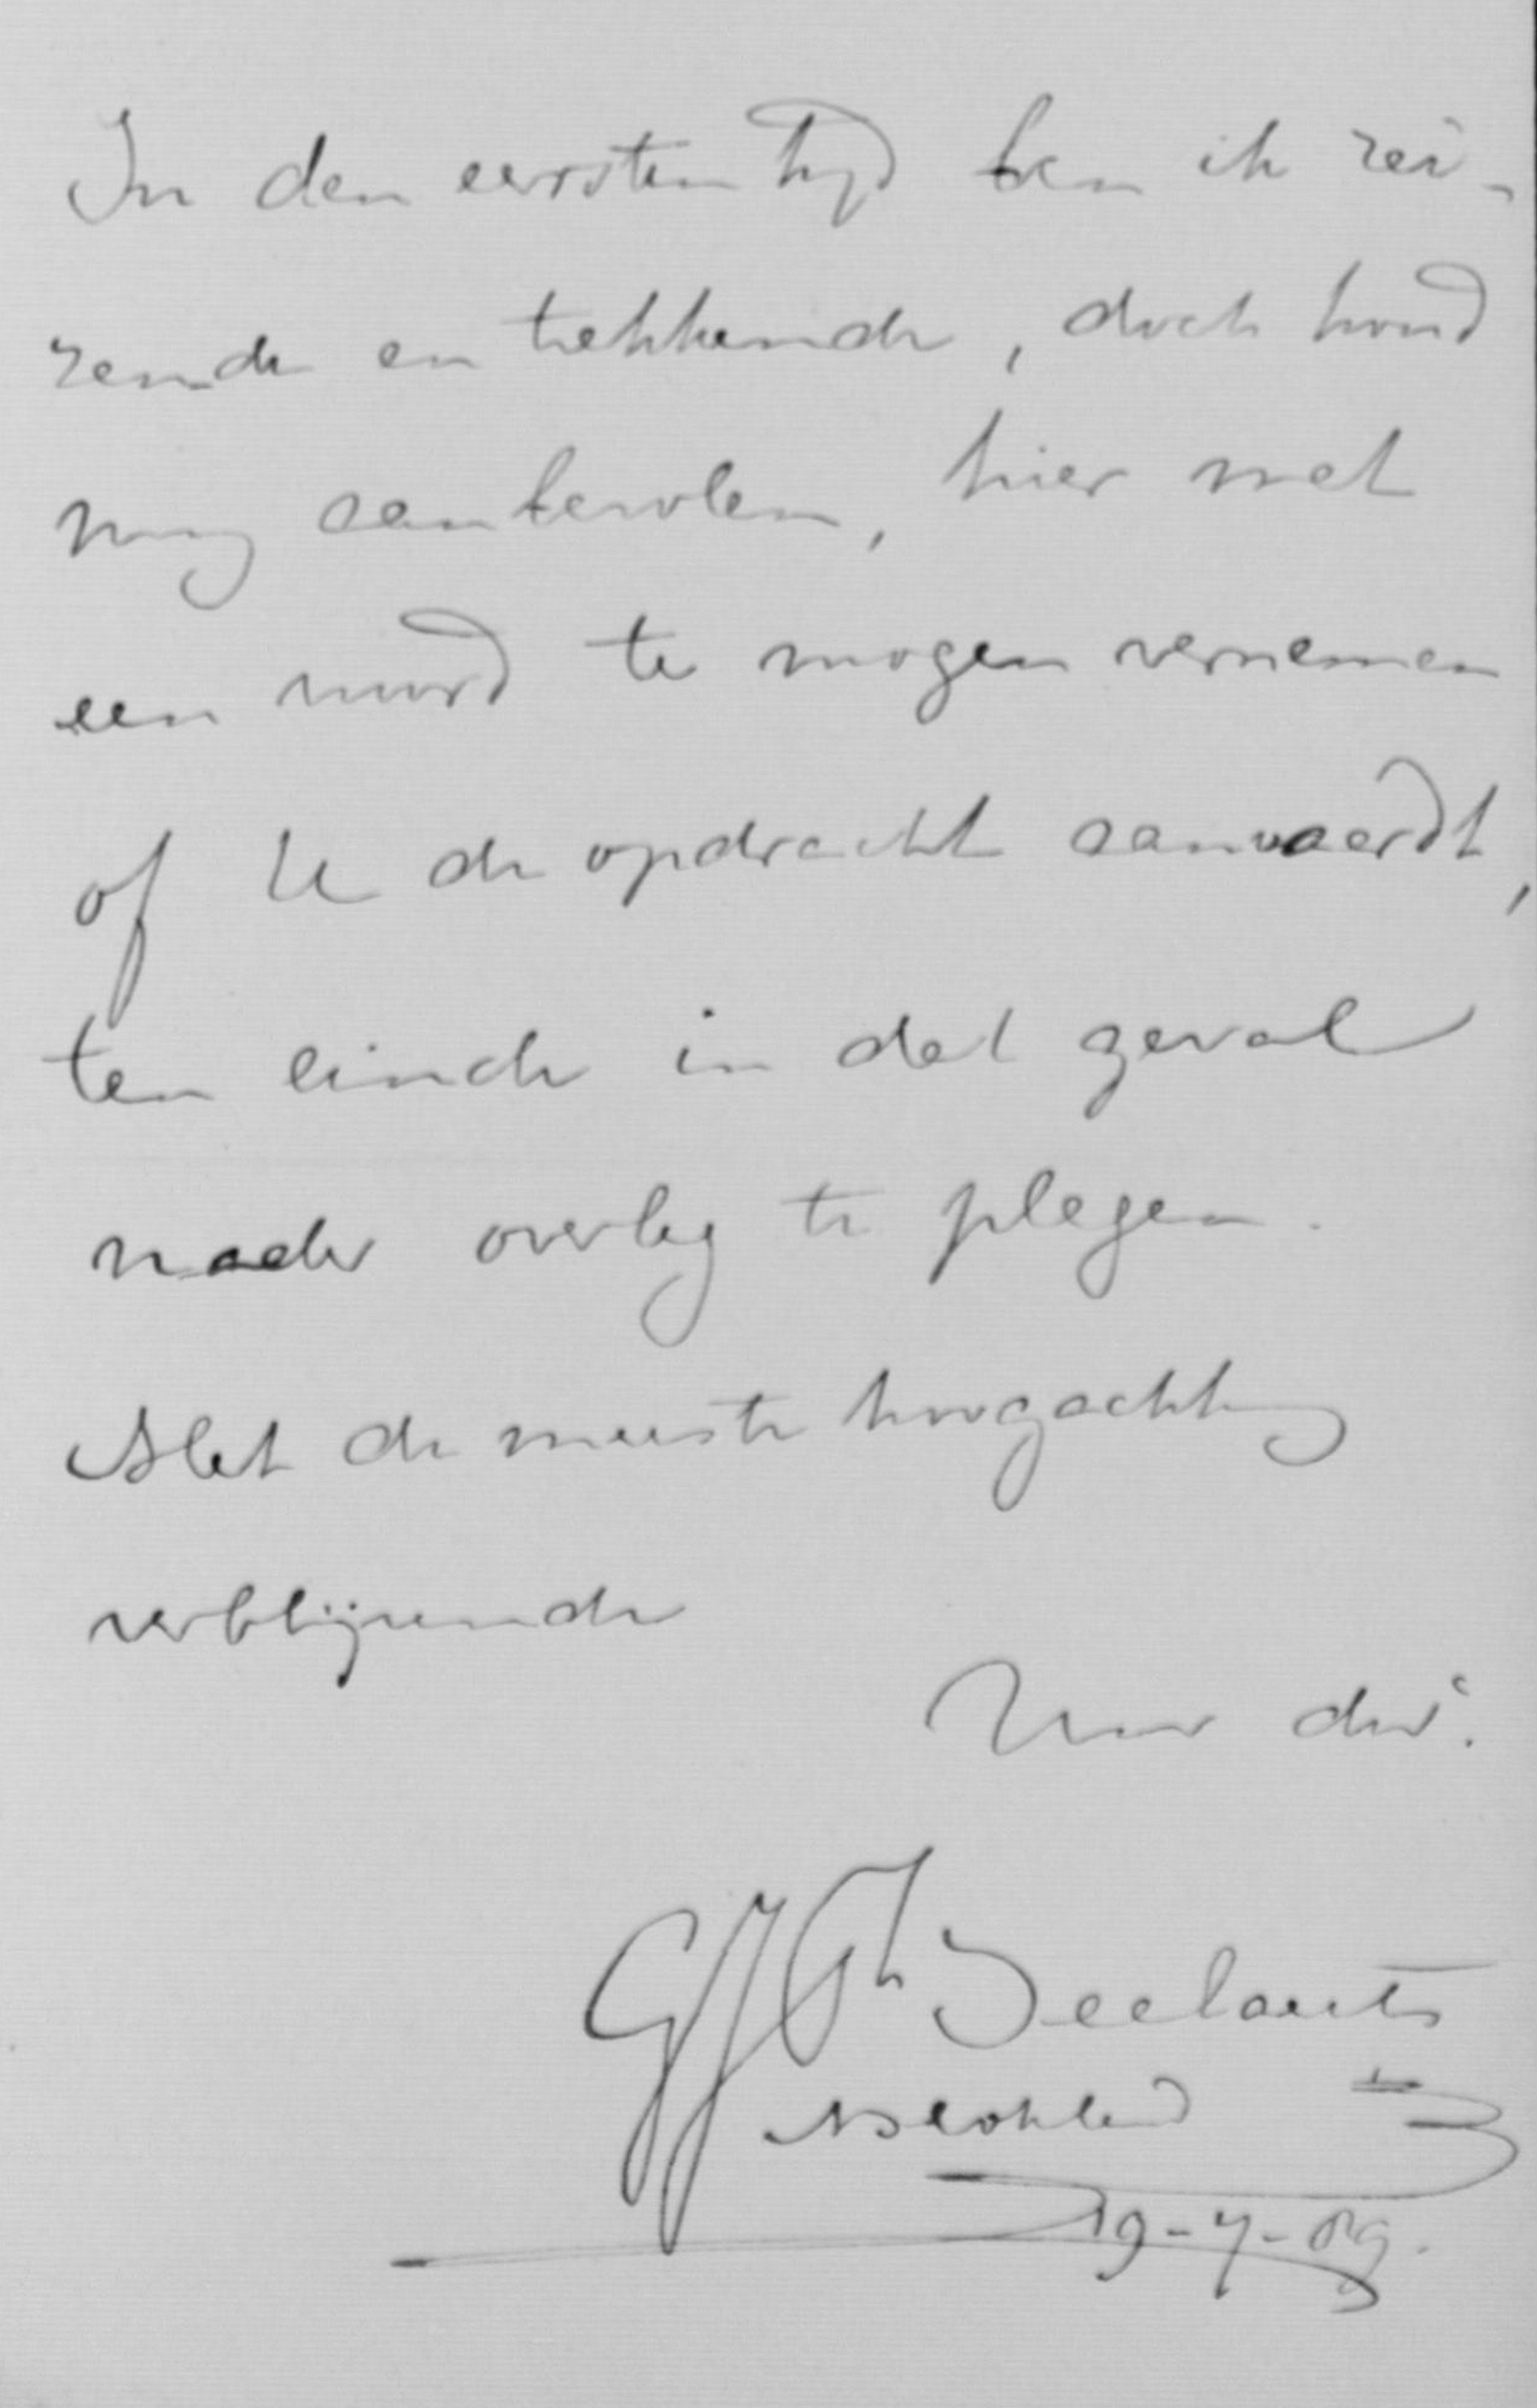 In den eersten tijd ben ik rei-
zende en trekkende, doch houd
mij aanbevolen, hier met
een woord te mogen vernemen
of U de opdracht aanvaardt,
ten einde in dat geval
nader overleg te plegen.
Met de meeste hoogachting
verblijvende
Uw dw.
19-7-09.